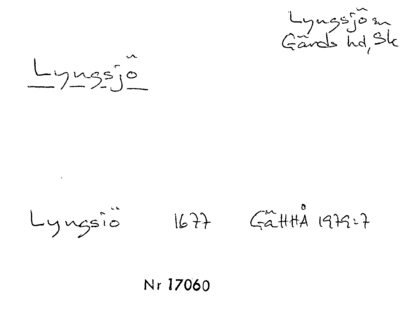 Lyngsjö sn
Gärds hd, Sk
Lyngsjö
Lyngsiö 1677 GäHHÅ 1979:7
Nr 17060